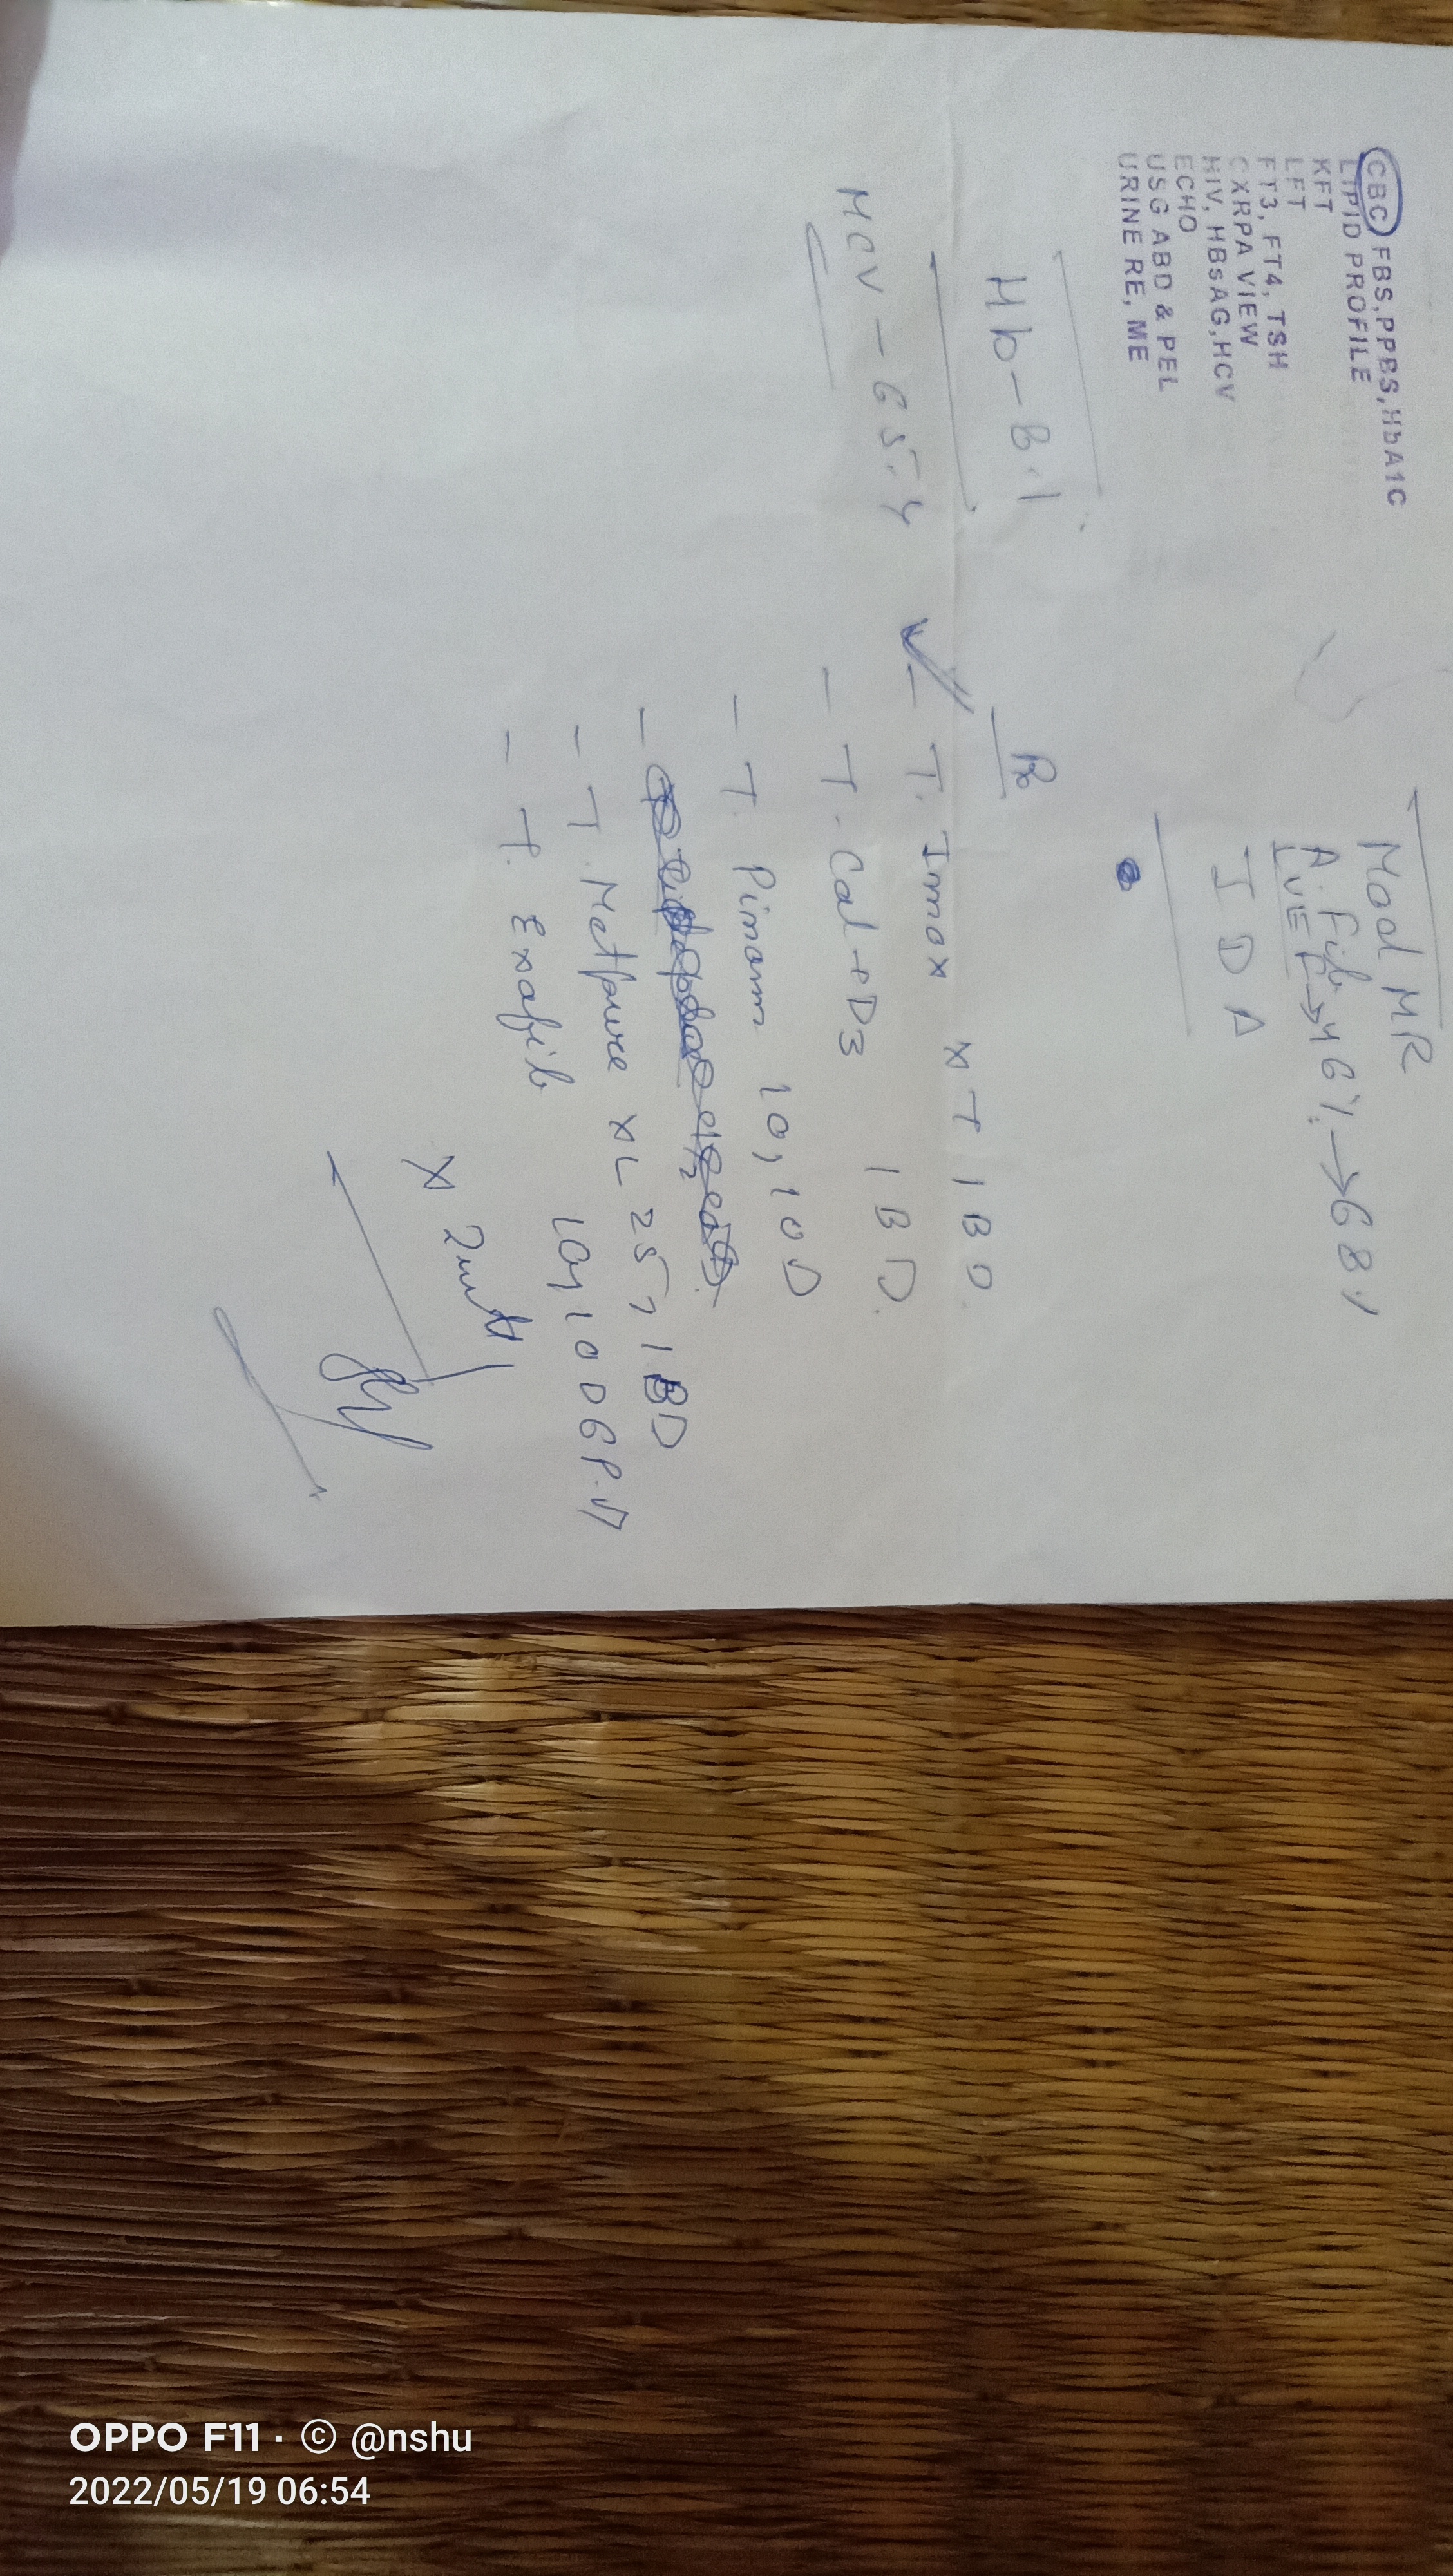 CBC, FBS, PPBS, HbA1C
LIPID PROFILE
KFT
LFT
FT3, FT4, TSH
CXRPA VIEW
HIV, HBsAG, HCV
ECHO
USG ABD & PEL
URINE RE, ME
Hb - 8.1
MCV - 65.4
Mod MR
A. Fib
LVEF → 46% → 68%
IDA
Rx
- T. Imox XT 1BD
- T. Cal-eD3 1BD.
- T. Pinom 10, 1OD
- T. Metpure XL 25, 1BD
- T. Exafib 10, 1OD 6P.M
x 2 mth
OPPO F11 · © @nshu
2022/05/19 06:54